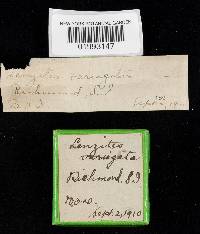 NEW YORK BOTANICAL GARDEN
01993147
Lenzites variegata
Richmond S.I.
Sept. 2, 1910
Lenzites
variegata
Richmond. S.I
Sept. 2, 1910